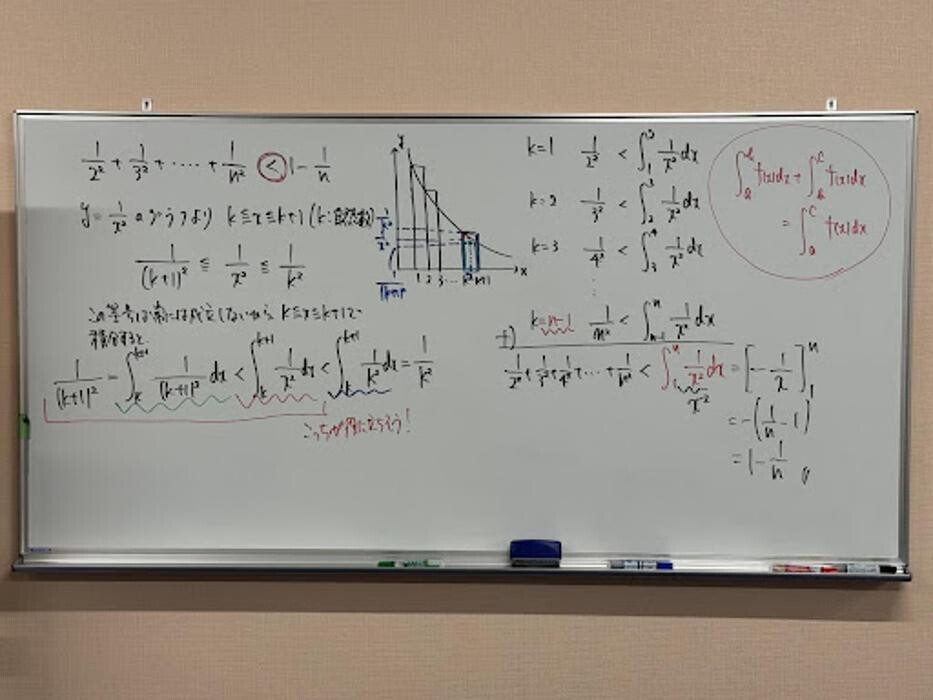 1/2² + 1/3² + ····· + 1/n² < 1 - 1/n
y = 1/x² のグラフより k ≦ x ≦ k+1 (k: 自然数)
1/(k+1)² ≦ 1/x² ≦ 1/k²
この等号は常には成立しないから k≦x≦k+1で
積分すると
1/(k+1)² = ∫_k^{k+1} 1/(k+1)² dx < ∫_k^{k+1} 1/x² dx < ∫_k^{k+1} 1/k² dx = 1/k²
こっちが役に立ちそう!
y
x
1 2 3 ... k k+1
k=1 1/2² < ∫_1^2 1/x² dx
k=2 1/3² < ∫_2^3 1/x² dx
k=3 1/4² < ∫_3^4 1/x² dx
⋮
k=n-1 1/n² < ∫_{n-1}^n 1/x² dx
+)
1/2² + 1/3² + 1/4² + ··· + 1/n² < ∫_1^n 1/x² dx = [-1/x]_1^n
x⁻²
= -(1/n - 1)
= 1 - 1/n
∫_a^b f(x)dx + ∫_b^c f(x)dx
= ∫_a^c f(x)dx